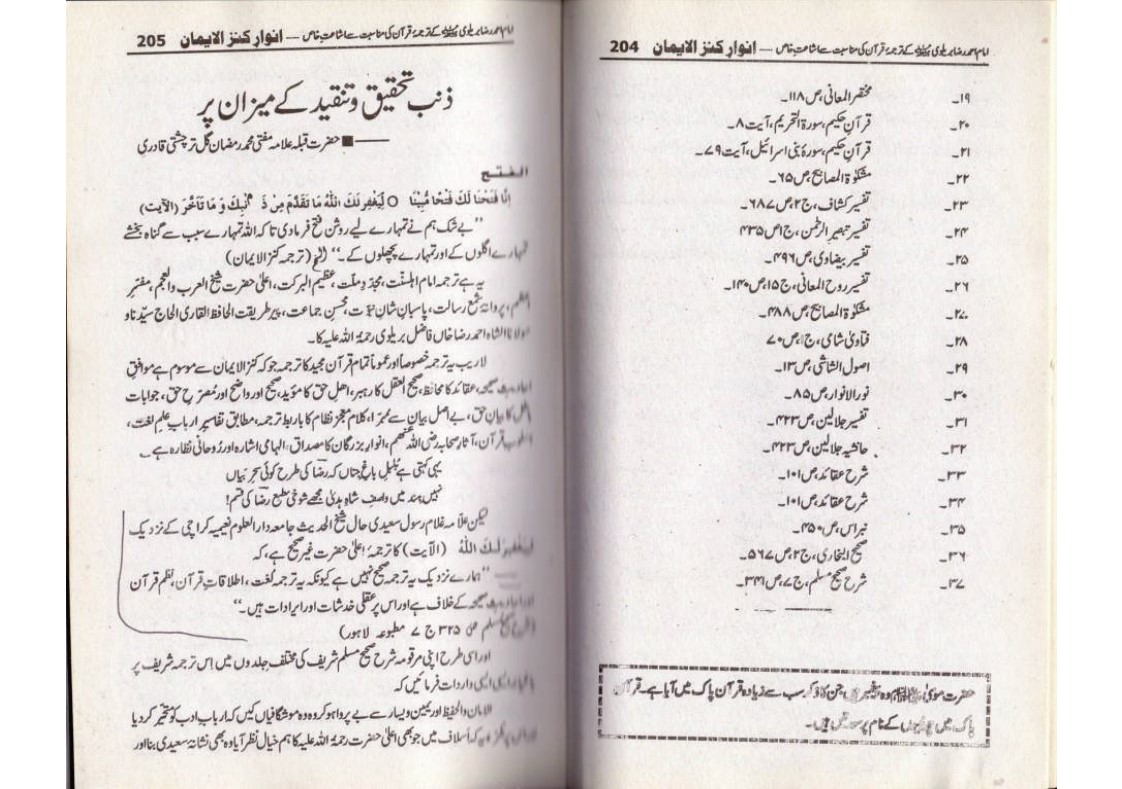 امام احمد رضا بریلوی کے ترجمۂ قرآن کی مناسبت سے اشاعتِ خاص — انوارِ کنز الایمان 204
۱۹۔ مختصر المعانی، ص۱۱۸۔
۲۰۔ قرآنِ حکیم، سورۃ التحریم، آیت ۸۔
۲۱۔ قرآنِ حکیم، سورۂ بنی اسرائیل، آیت ۷۹۔
۲۲۔ مشکوٰۃ المصابیح، ص۶۵۔
۲۳۔ تفسیر کشاف، ج۲، ص۶۸۷۔
۲۴۔ تفسیر تبصیر الرحمٰن، ج۱ص۴۳۵
۲۵۔ تفسیر بیضاوی، ص۴۹۶۔
۲۶۔ تفسیر روح المعانی، ج۱۵، ص۱۴۰۔
۲۷۔ مشکوٰۃ المصابیح، ص۴۸۸۔
۲۸۔ فتاویٰ شامی، ج۱، ص۷۰
۲۹۔ اصول الشاشی، ص۱۳۔
۳۰۔ نور الانوار، ص۸۵۔
۳۱۔ تفسیر جلالین، ص۴۲۳۔
۳۲۔ حاشیہ جلالین، ص۴۲۳۔
۳۳۔ شرح عقائد، ص۱۰۱۔
۳۴۔ شرح عقائد، ص۱۰۱۔
۳۵۔ نبراس، ص۴۵۰۔
۳۶۔ صحیح البخاری، ج۲، ص۵۶۷۔
۳۷۔ شرح صحیح مسلم، ج۷، ص۳۴۱۔
حضرت موسیٰ وہ پیغمبر ہیں جن کا ذکر سب سے زیادہ قرآن پاک میں آیا ہے۔ قرآن
پاک میں پیغمبروں کے نام پر سورتیں ہیں۔
امام احمد رضا بریلوی کے ترجمۂ قرآن کی مناسبت سے اشاعتِ خاص — انوارِ کنز الایمان 205
ذنب تحقیق و تنقید کے میزان پر
حضرت قبلہ علامہ مفتی محمد رمضان گل تر چشتی قادری
الفتح
اِنَّا فَتَحْنَا لَكَ فَتْحًا مُّبِيْنًا ○ لِّيَغْفِرَ لَكَ اللّٰهُ مَا تَقَدَّمَ مِنْ ذَنْبِكَ وَ مَا تَاَخَّرَ (الآیت)
"بے شک ہم نے تمہارے لیے روشن فتح فرمادی تا کہ اللہ تمہارے سبب سے گناہ بخشے
تمہارے اگلوں کے اور تمہارے پچھلوں کے۔" الخ (ترجمہ کنز الایمان)
یہ ہے ترجمہ امام اہلسنّت، مجدّدِ دین و ملّت، عظیم البرکت، اعلیٰ حضرت شیخ العرب والعجم، مفسّرِ
اعظم، پروانۂ شمع رسالت، پاسبانِ شانِ نبوّت، محسنِ جماعت، پیرِ طریقت الحافظ القاری الحاج سیّدنا و
مولانا الشاہ احمد رضا خاں فاضل بریلوی رحمۃ اللہ علیہ کا۔
لاریب یہ ترجمہ خصوصاً اور عموماً تمام قرآن مجید کا ترجمہ جو کہ کنز الایمان سے موسوم ہے موافقِ
احادیثِ صحیحہ، عقائد کا محافظ، صحیح العقل کا رہبر، اہلِ حق کا مؤید، صحیح اور واضح اور مُصرّحِ حق، جوابات
باطل کا بیانِ حق، بے اصل بیان سے مُبرّا، کلام معجز نظام کا باربط ترجمہ، مطابق تفاسیرِ اربابِ علم لغت،
اسلوبِ قرآن، آثارِ صحابہ رضی اللہ عنھم، انوارِ بزرگان کا مصداق، الہامی اشارہ اور رُوحانی نظارہ ہے۔
یہی کہتی ہے بلبلِ باغِ جناں کہ رضاؔ کی طرح کوئی سحر بیاں
نہیں ہند میں واصفِ شاہِ ہدیٰ مجھے شوخیِ طبعِ رضاؔ کی قسم!
لیکن علامہ غلام رسول سعیدی حال شیخ الحدیث جامعہ دار العلوم نعیمیہ کراچی کے نزدیک
لِيَغْفِرَ لَكَ اللّٰهُ (الآیت) کا ترجمۂ اعلیٰ حضرت غیر صحیح ہے، کہ
"ہمارے نزدیک یہ ترجمہ صحیح نہیں ہے کیونکہ یہ ترجمہ لغت، اطلاقاتِ قرآن، نظم قرآن
اور احادیثِ صحیحہ کے خلاف ہے اور اس پر عقلی خدشات اور ایرادات ہیں۔"
(شرح صحیح مسلم ص ۳۲۵ ج ۷ مطبوعہ لاہور)
اور اسی طرح اپنی مرقومہ شرح صحیح مسلم شریف کی مختلف جلدوں میں اِس ترجمہ شریف پر
ایسی ایسی واردات فرمائیں کہ
الامان والحفیظ اور یمین و یسار سے بے پروا ہو کر وہ وہ موشگافیاں کیں کہ اربابِ ادب کو متحیر کر دیا
اور اس پر کہ اسلاف میں جو بھی اعلیٰ حضرت رحمۃ اللہ علیہ کا ہم خیال نظر آیا وہ بھی نشانہ سعیدی بنا اور